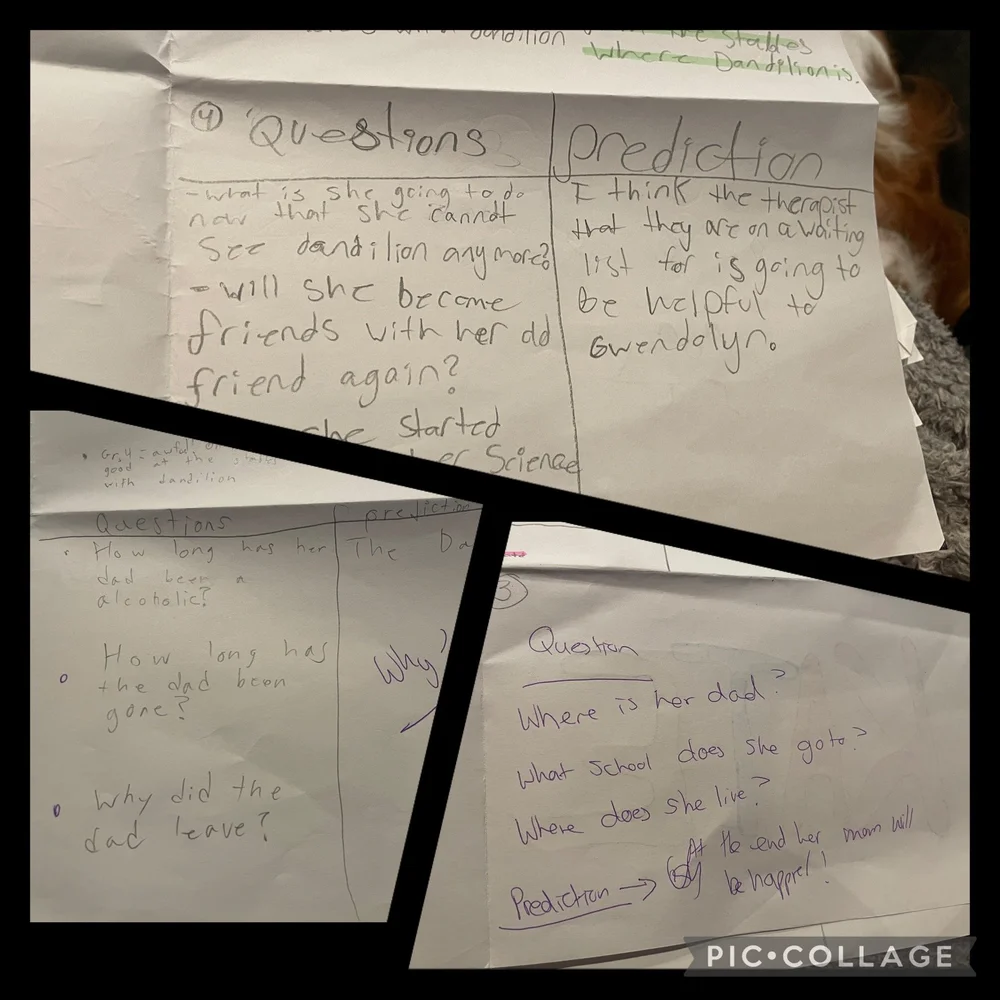 dandilion
the stables
Where Dandilion is.
④ Questions
- what is she going to do
now that she cannot
see dandilion anymore?
- will she become
friends with her old
friend again?
she started
her Science
prediction
I think the therapist
that they are on a waiting
list for is going to
be helpful to
Gwendolyn.
good at the
with dandilion
Questions
• How long has her
dad been a
alcoholic?
How long has
the dad been
gone?
Why did the
dad leave?
prediction
The Da
Why?
3
Question
Where is her dad?
What School does she go to?
Where does she live?
Prediction →
At the end her mom will
be happre!
PIC•COLLAGE